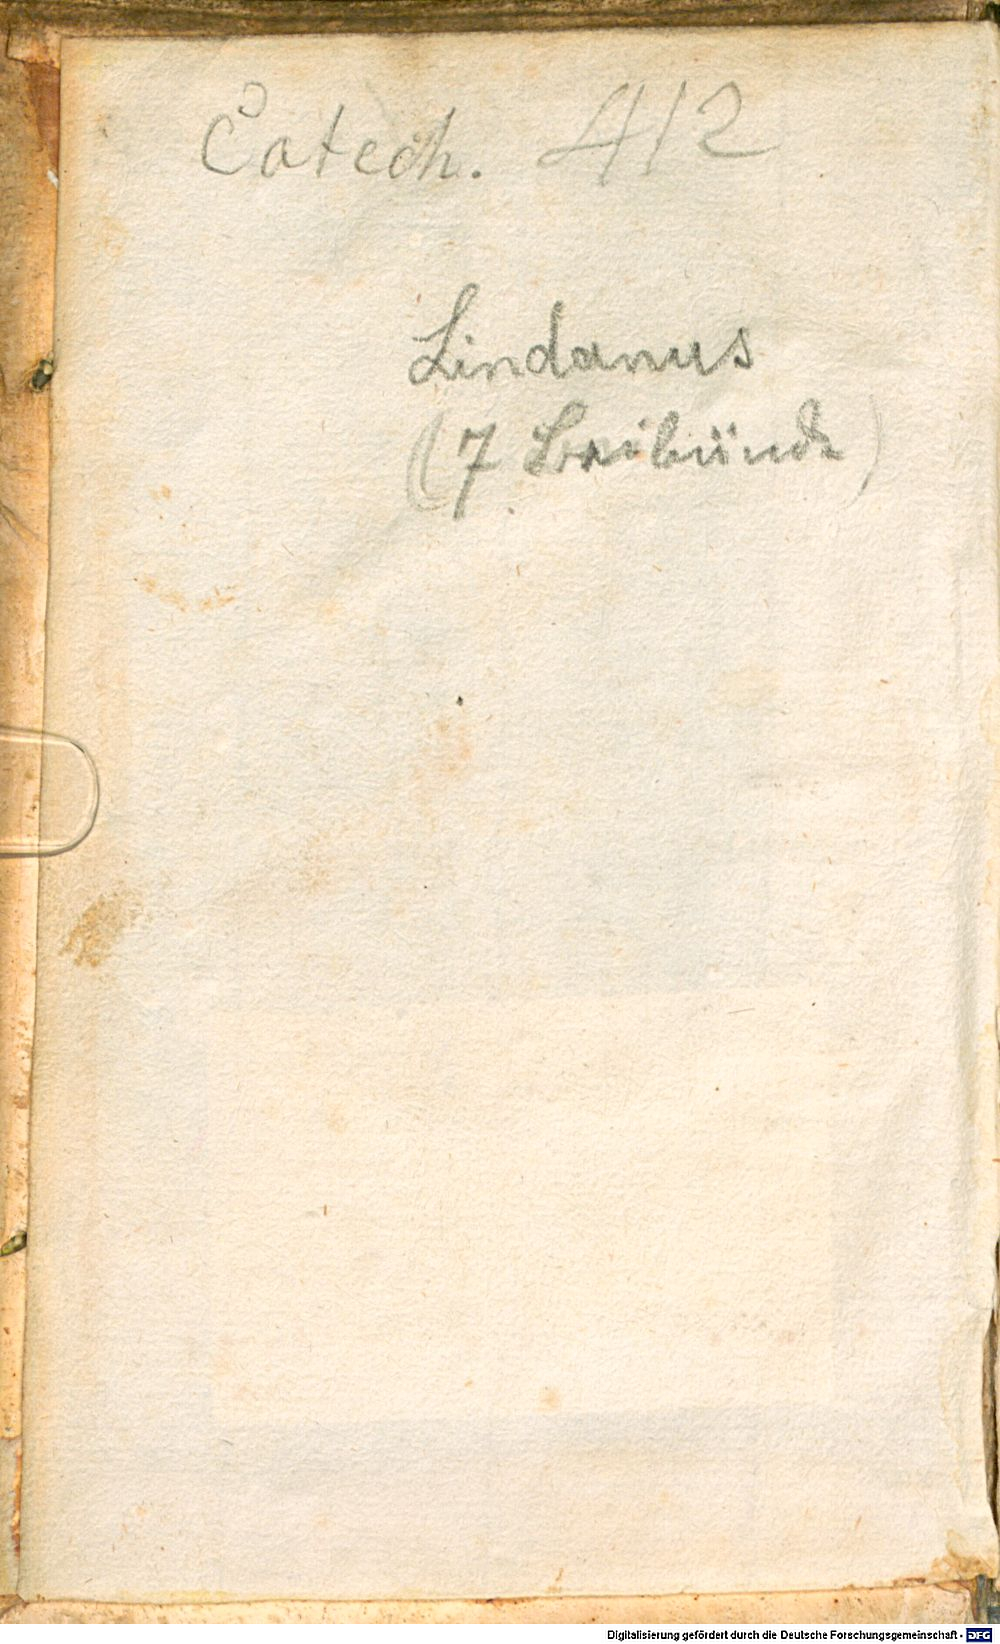 Catech. 412
Lindanus
(7 Beibünde)
Digitalisierung gefördert durch die Deutsche Forschungsgemeinschaft - DFG